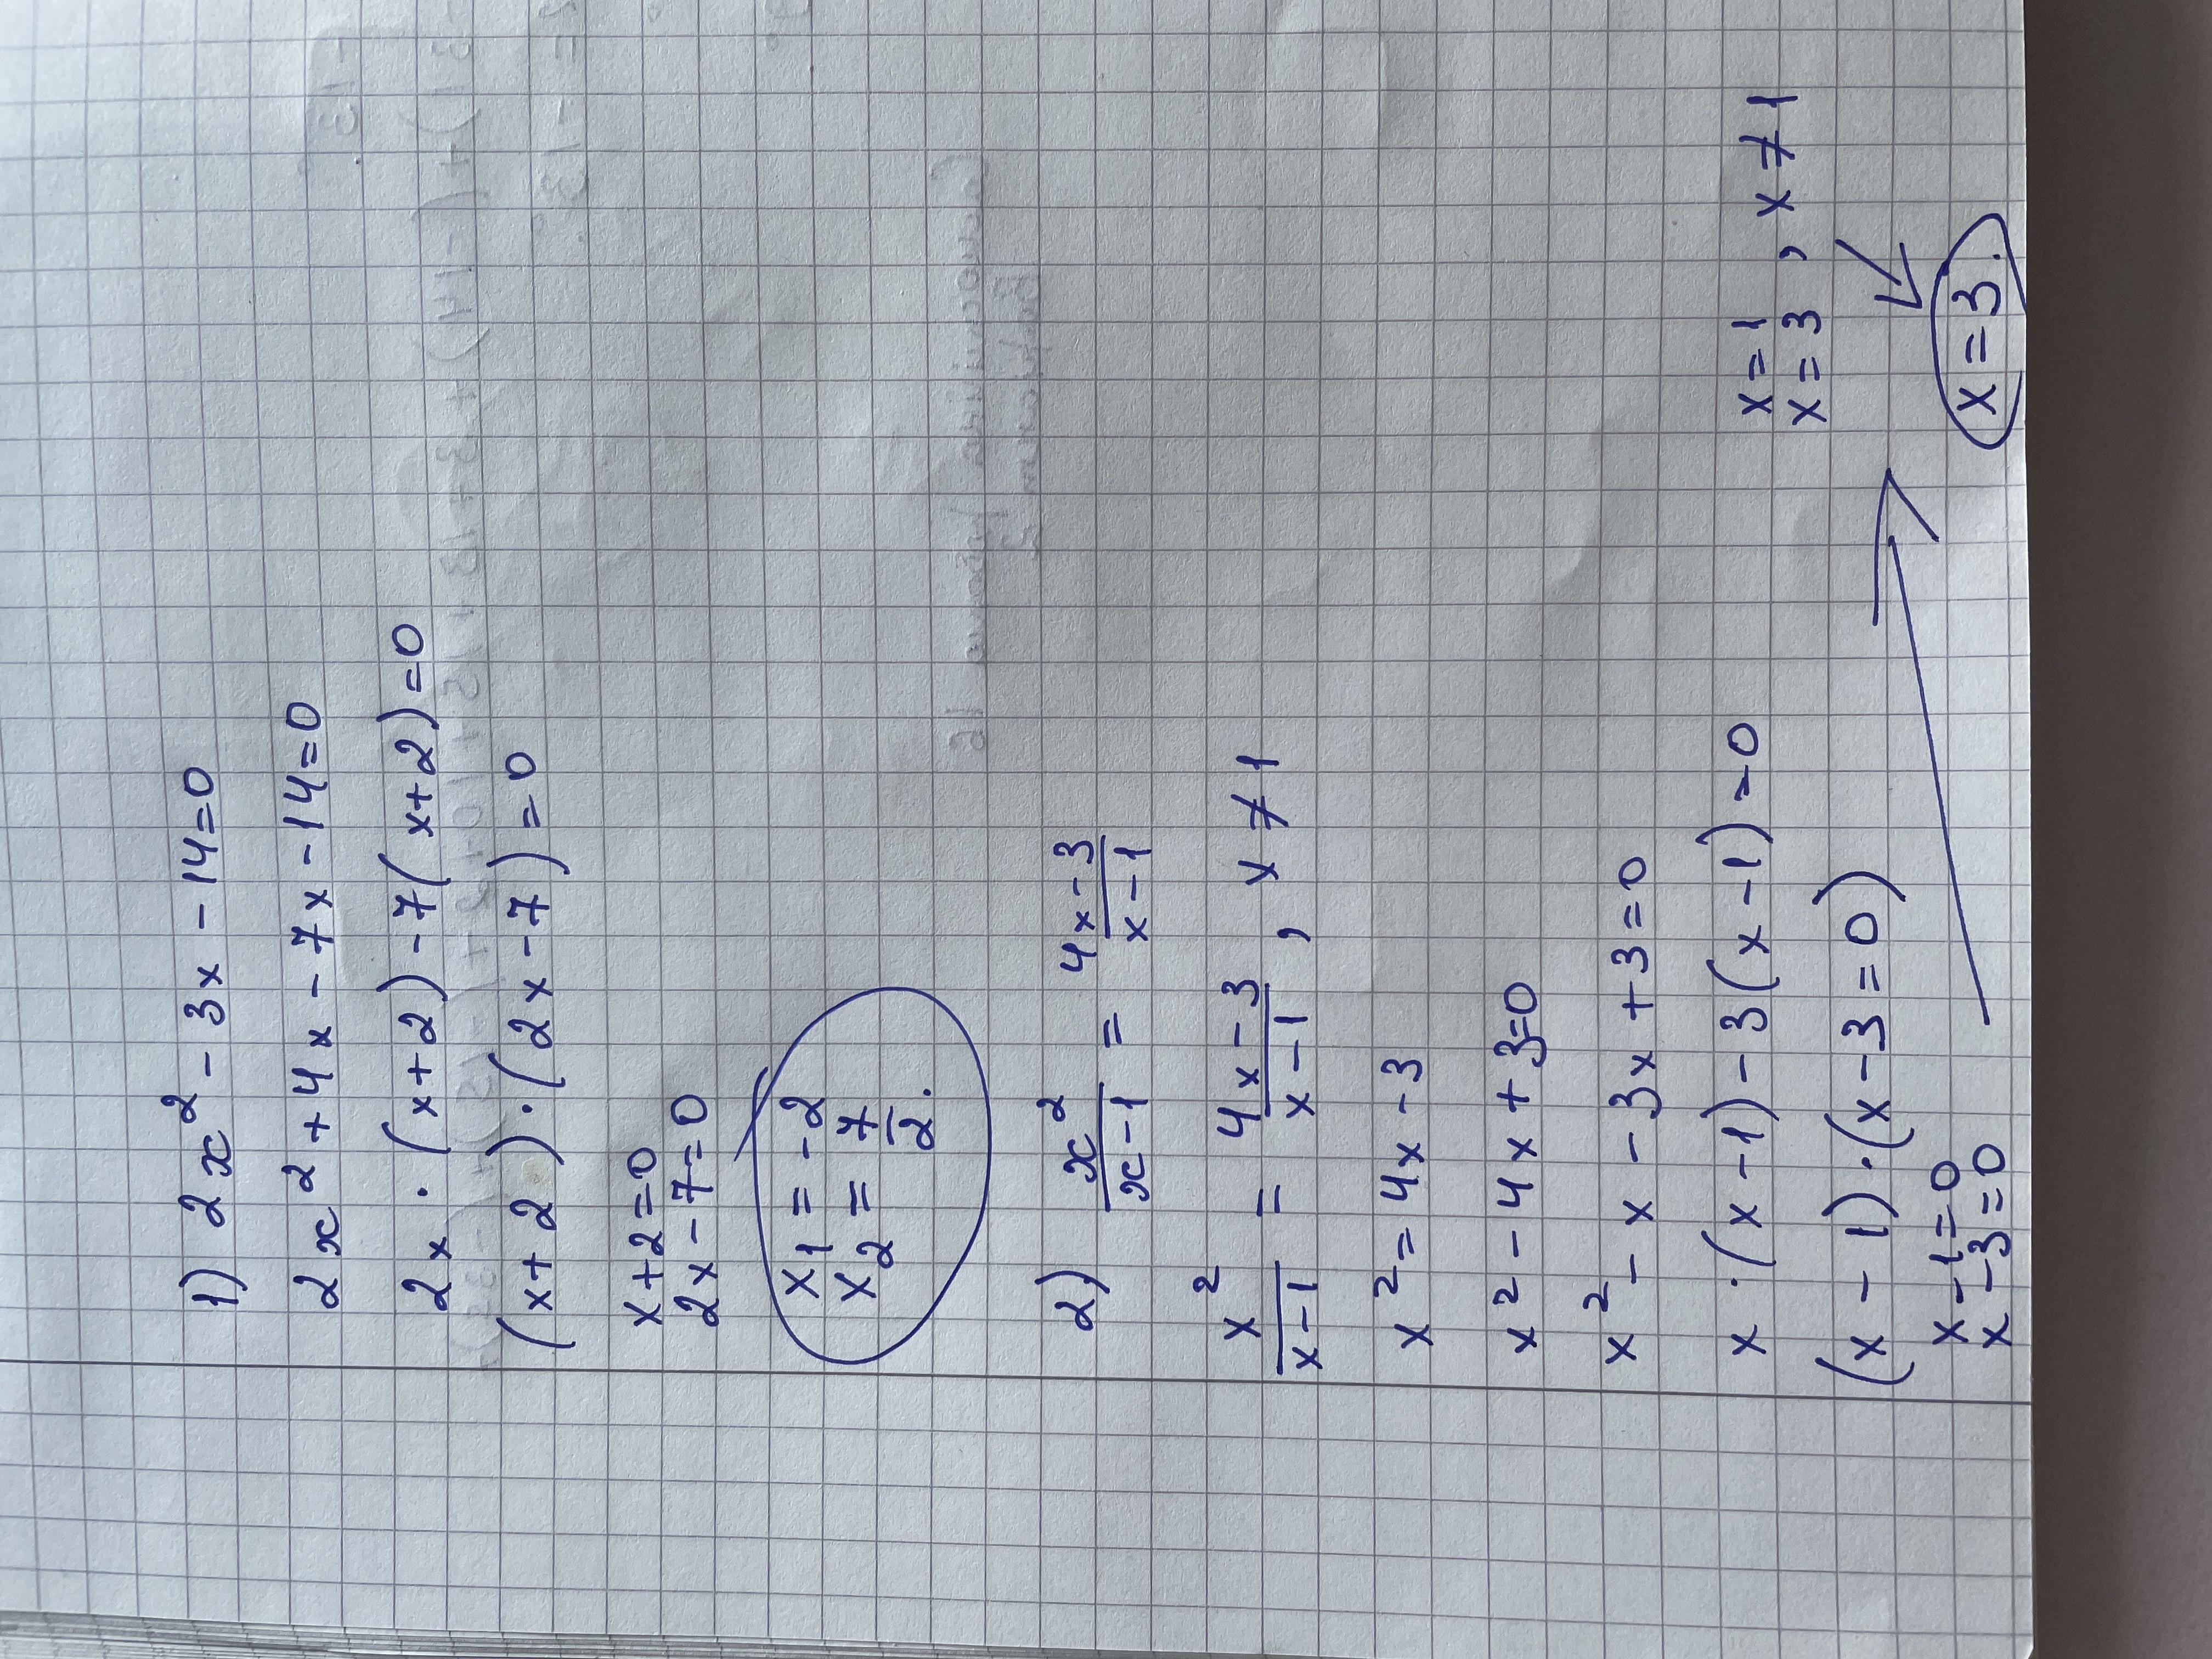 1) 2x² - 3x - 14=0
2x² + 4x - 7x - 14=0
2x · (x+2) - 7(x+2)=0
(x+2) · (2x - 7)=0
x+2=0
2x - 7=0
x1 = -2
x2 = 7/2.
2) x²/x-1 = 4x-3/x-1
x²/x-1 = 4x-3/x-1, x ≠ 1
x² = 4x - 3
x² - 4x + 3=0
x² - x - 3x + 3=0
x · (x - 1) - 3(x - 1)=0
(x - 1) · (x - 3=0)
x - 1=0
x - 3=0
x = 1
x = 3, x ≠ 1
x = 3.